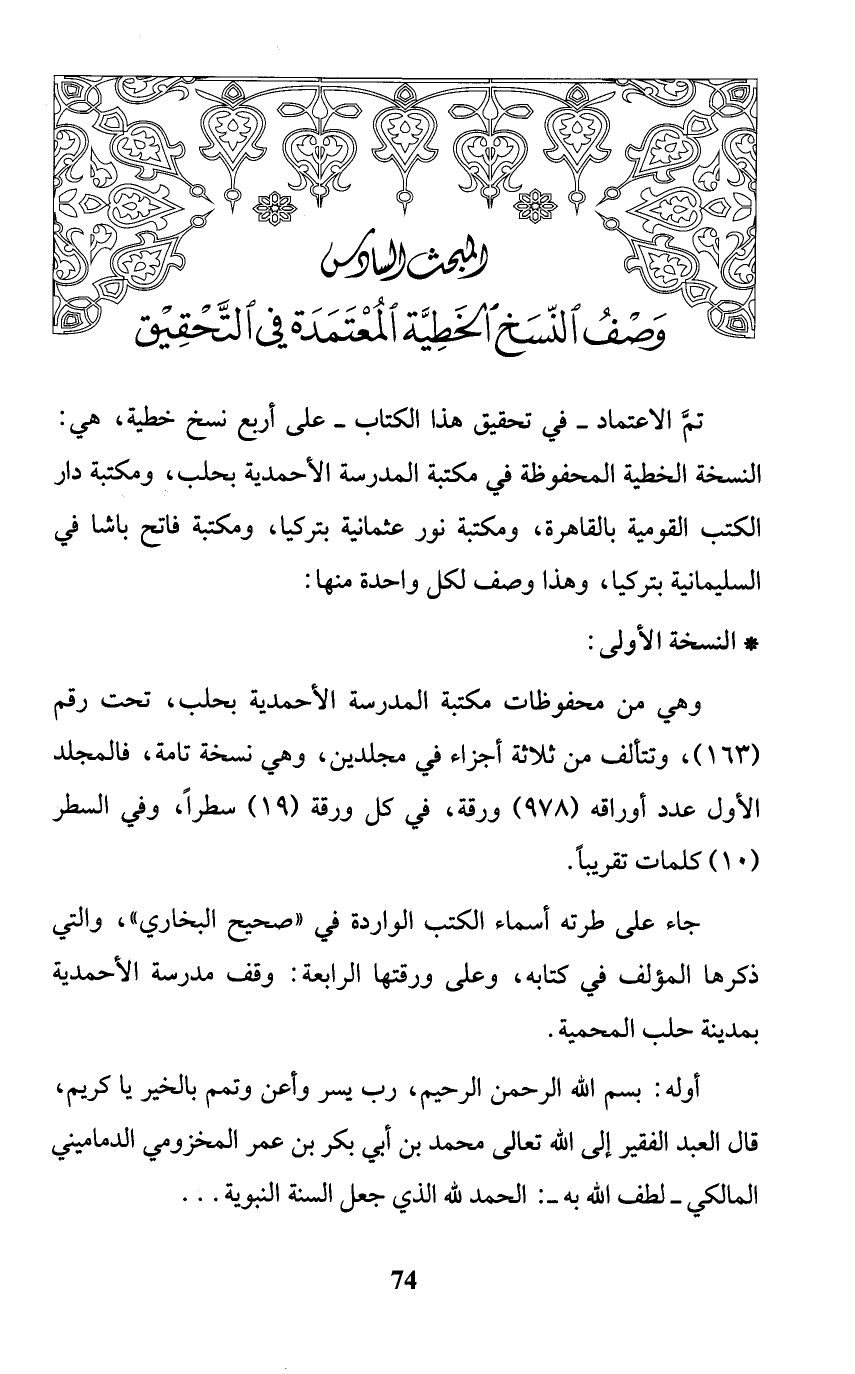 المبحث السادس
وَصْفُ ٱلنُّسَخِ ٱلخَطِيَّةِ ٱلمُعْتَمَدَةِ في ٱلتَّحْقِيْقِ
تمَّ الاعتماد ـ في تحقيق هذا الكتاب ـ على أربع نسخ خطية، هي:
النسخة الخطية المحفوظة في مكتبة المدرسة الأحمدية بحلب، ومكتبة دار
الكتب القومية بالقاهرة، ومكتبة نور عثمانية بتركيا، ومكتبة فاتح باشا في
السليمانية بتركيا، وهذا وصف لكل واحدة منها:
* النسخة الأولى:
وهي من محفوظات مكتبة المدرسة الأحمدية بحلب، تحت رقم
(١٦٣)، وتتألف من ثلاثة أجزاء في مجلدين، وهي نسخة تامة، فالمجلد
الأول عدد أوراقه (٩٧٨) ورقة، في كل ورقة (١٩) سطراً، وفي السطر
(١٠) كلمات تقريباً.
جاء على طرته أسماء الكتب الواردة في «صحيح البخاري»، والتي
ذكرها المؤلف في كتابه، وعلى ورقتها الرابعة: وقف مدرسة الأحمدية
بمدينة حلب المحمية.
أوله: بسم الله الرحمن الرحيم، رب يسر وأعن وتمم بالخير يا كريم،
قال العبد الفقير إلى الله تعالى محمد بن أبي بكر بن عمر المخزومي الدماميني
المالكي ـ لطف الله به ـ: الحمد لله الذي جعل السنة النبوية...
74